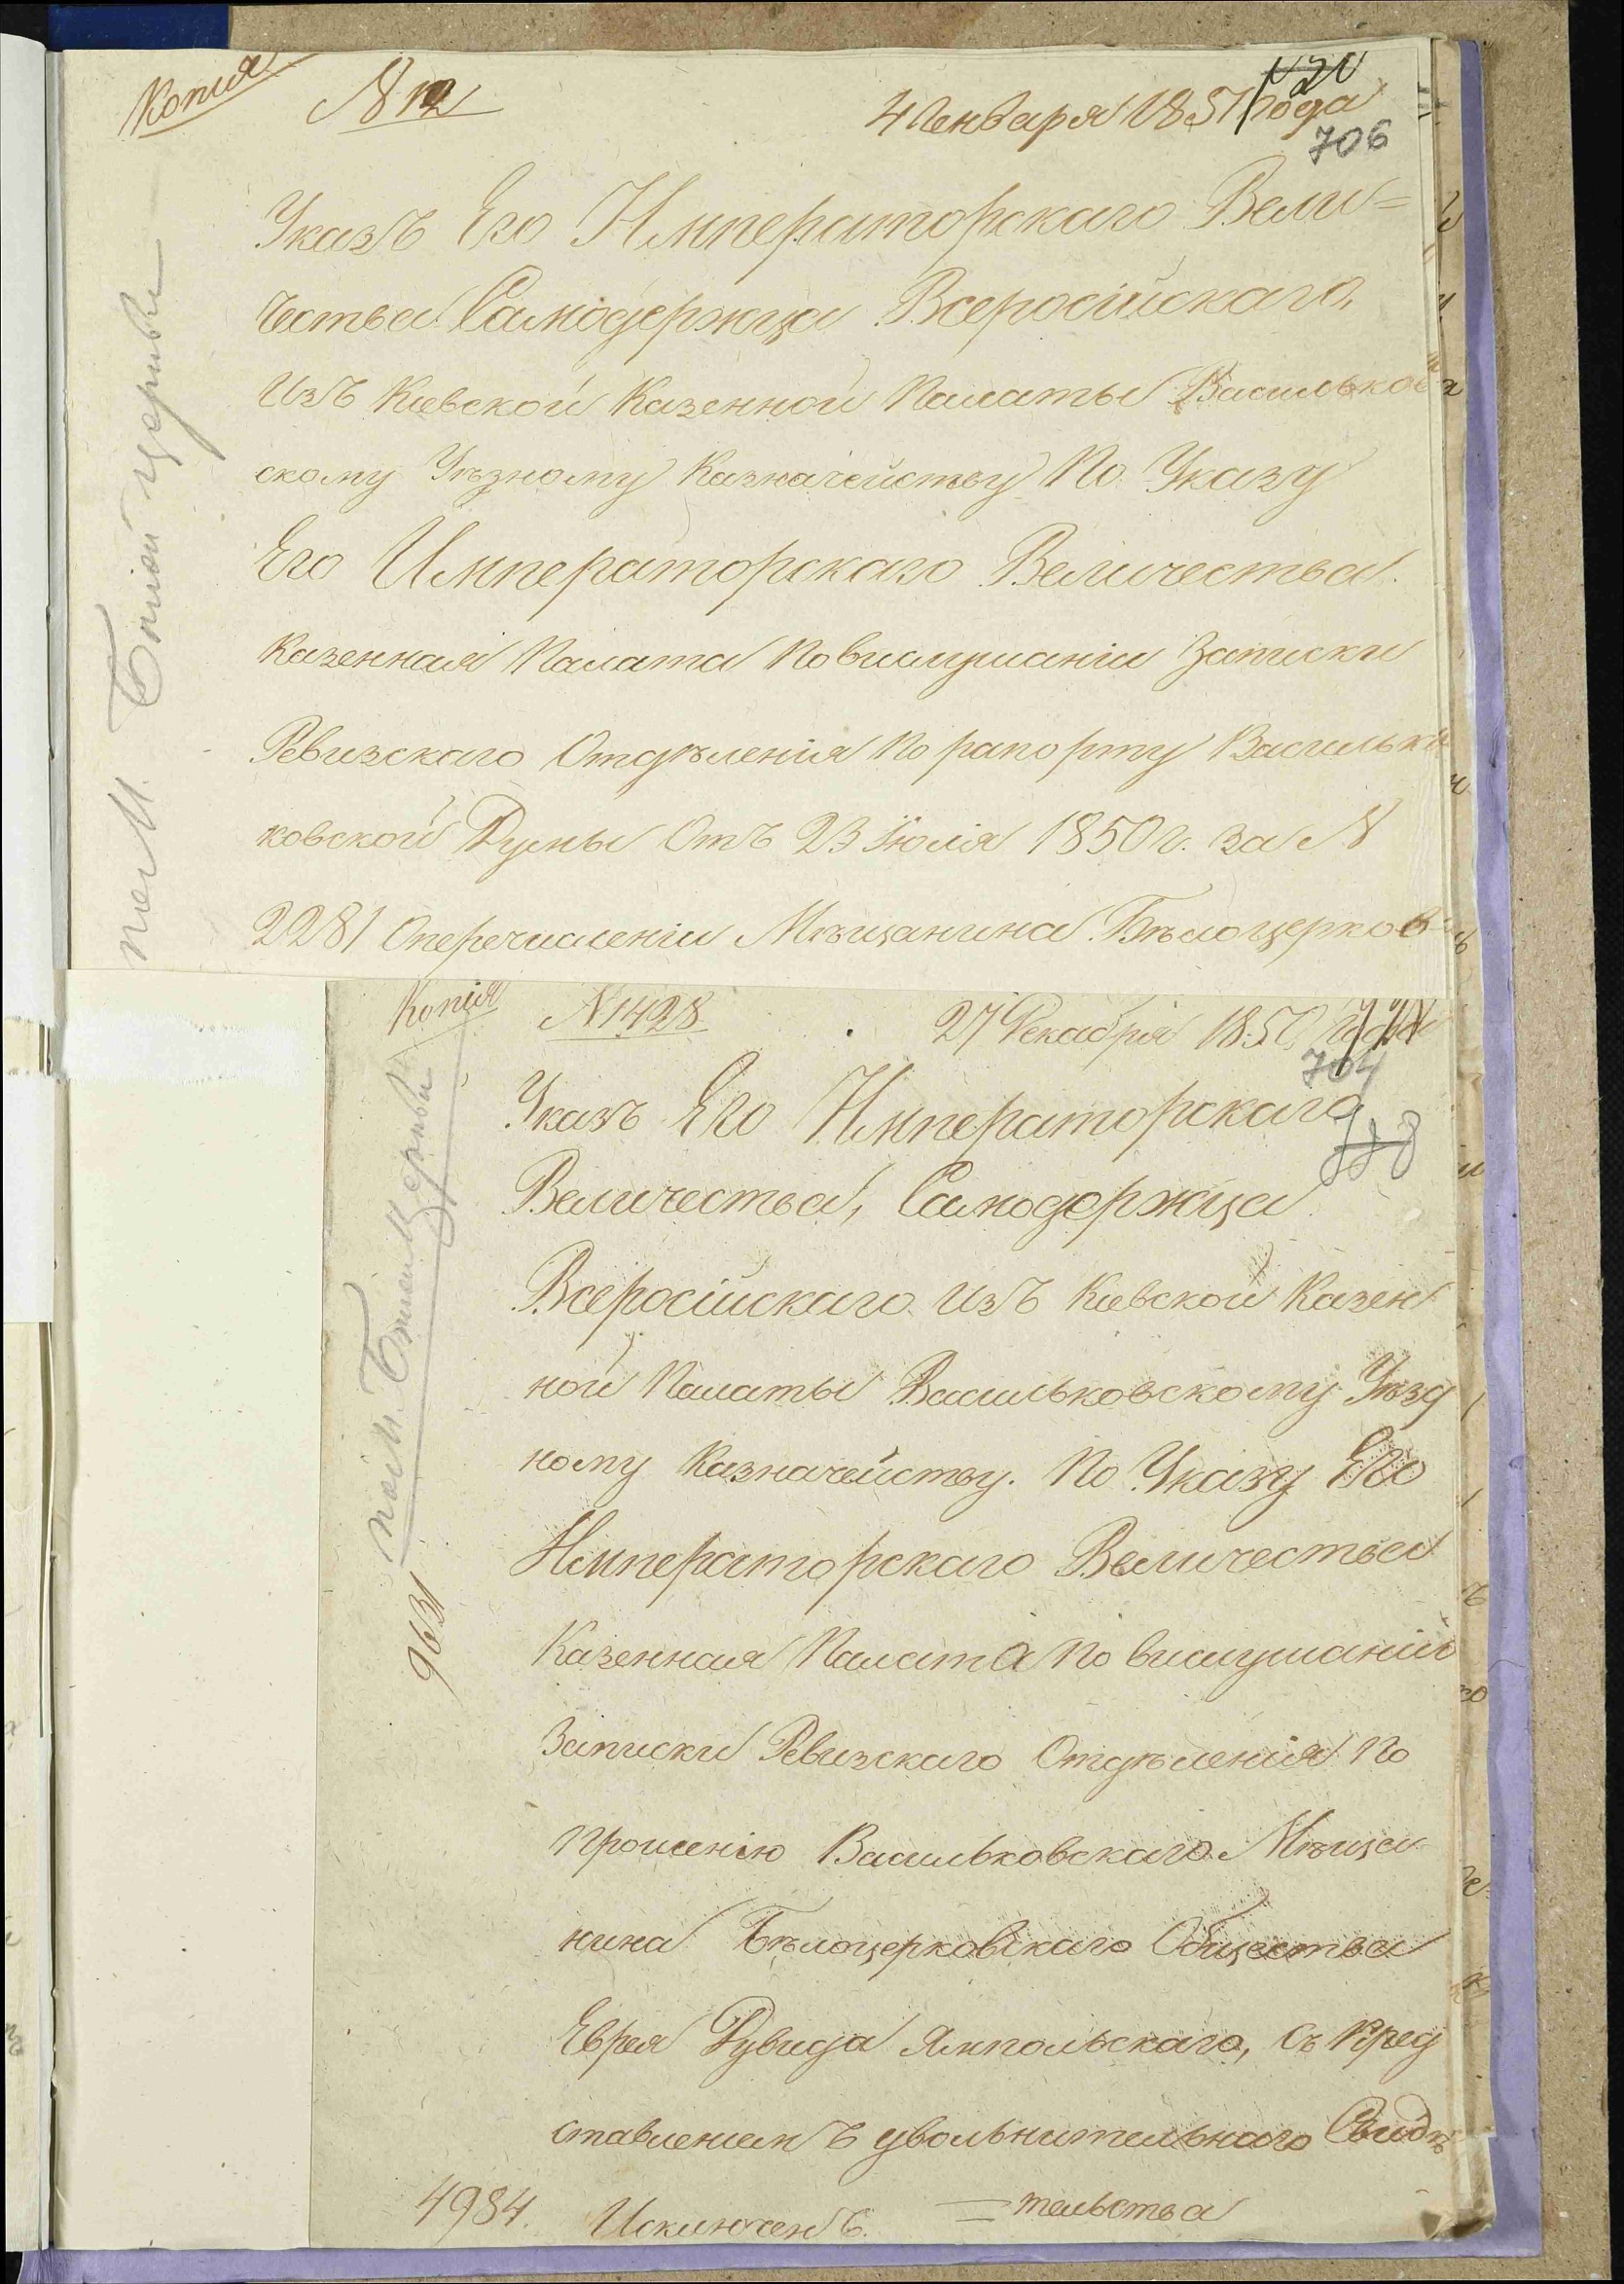 Копия
N 12
4 Генваря 1851 года
706
Указъ Его Императорскаго Вели=
чества Самодержца Всеросійскаго,
Изъ Киевской Казенной Палаты Васильков
скому Уѣздному Казначейству По Указу
Его Императорскаго Величества.
Казенная Палата По выслушаніи Записки
Ревизскаго Отдѣленія По рапорту Василь
ковской Думы Отъ 23 Іюля 1850 г. за N
2281 О перечисленіи Мѣщанина Бѣлоцерков
по М. Бѣлой церкви
Копія
N 1428
27 Декабря 1850 года
704
Указъ Его Императорскаго
Величества, Самодержца
Всеросійскаго Изъ Киевской Казен
ной Палаты Васильковскому Уѣзд
ному Казначейству. По Указу Его
Императорскаго Величества
Казенная Палата По выслушаніи
Записки Ревизскаго Отдѣленія По
Прошенію Васильковскаго Мѣща
нина Бѣлоцерковскаго Общества
Еврея Дувида Ямпольскаго, Съ Пред
ставленіемъ увольнительнаго Свидѣ
=тельства
4984. Исключенъ.
по М. Бѣлой Церкви
9631